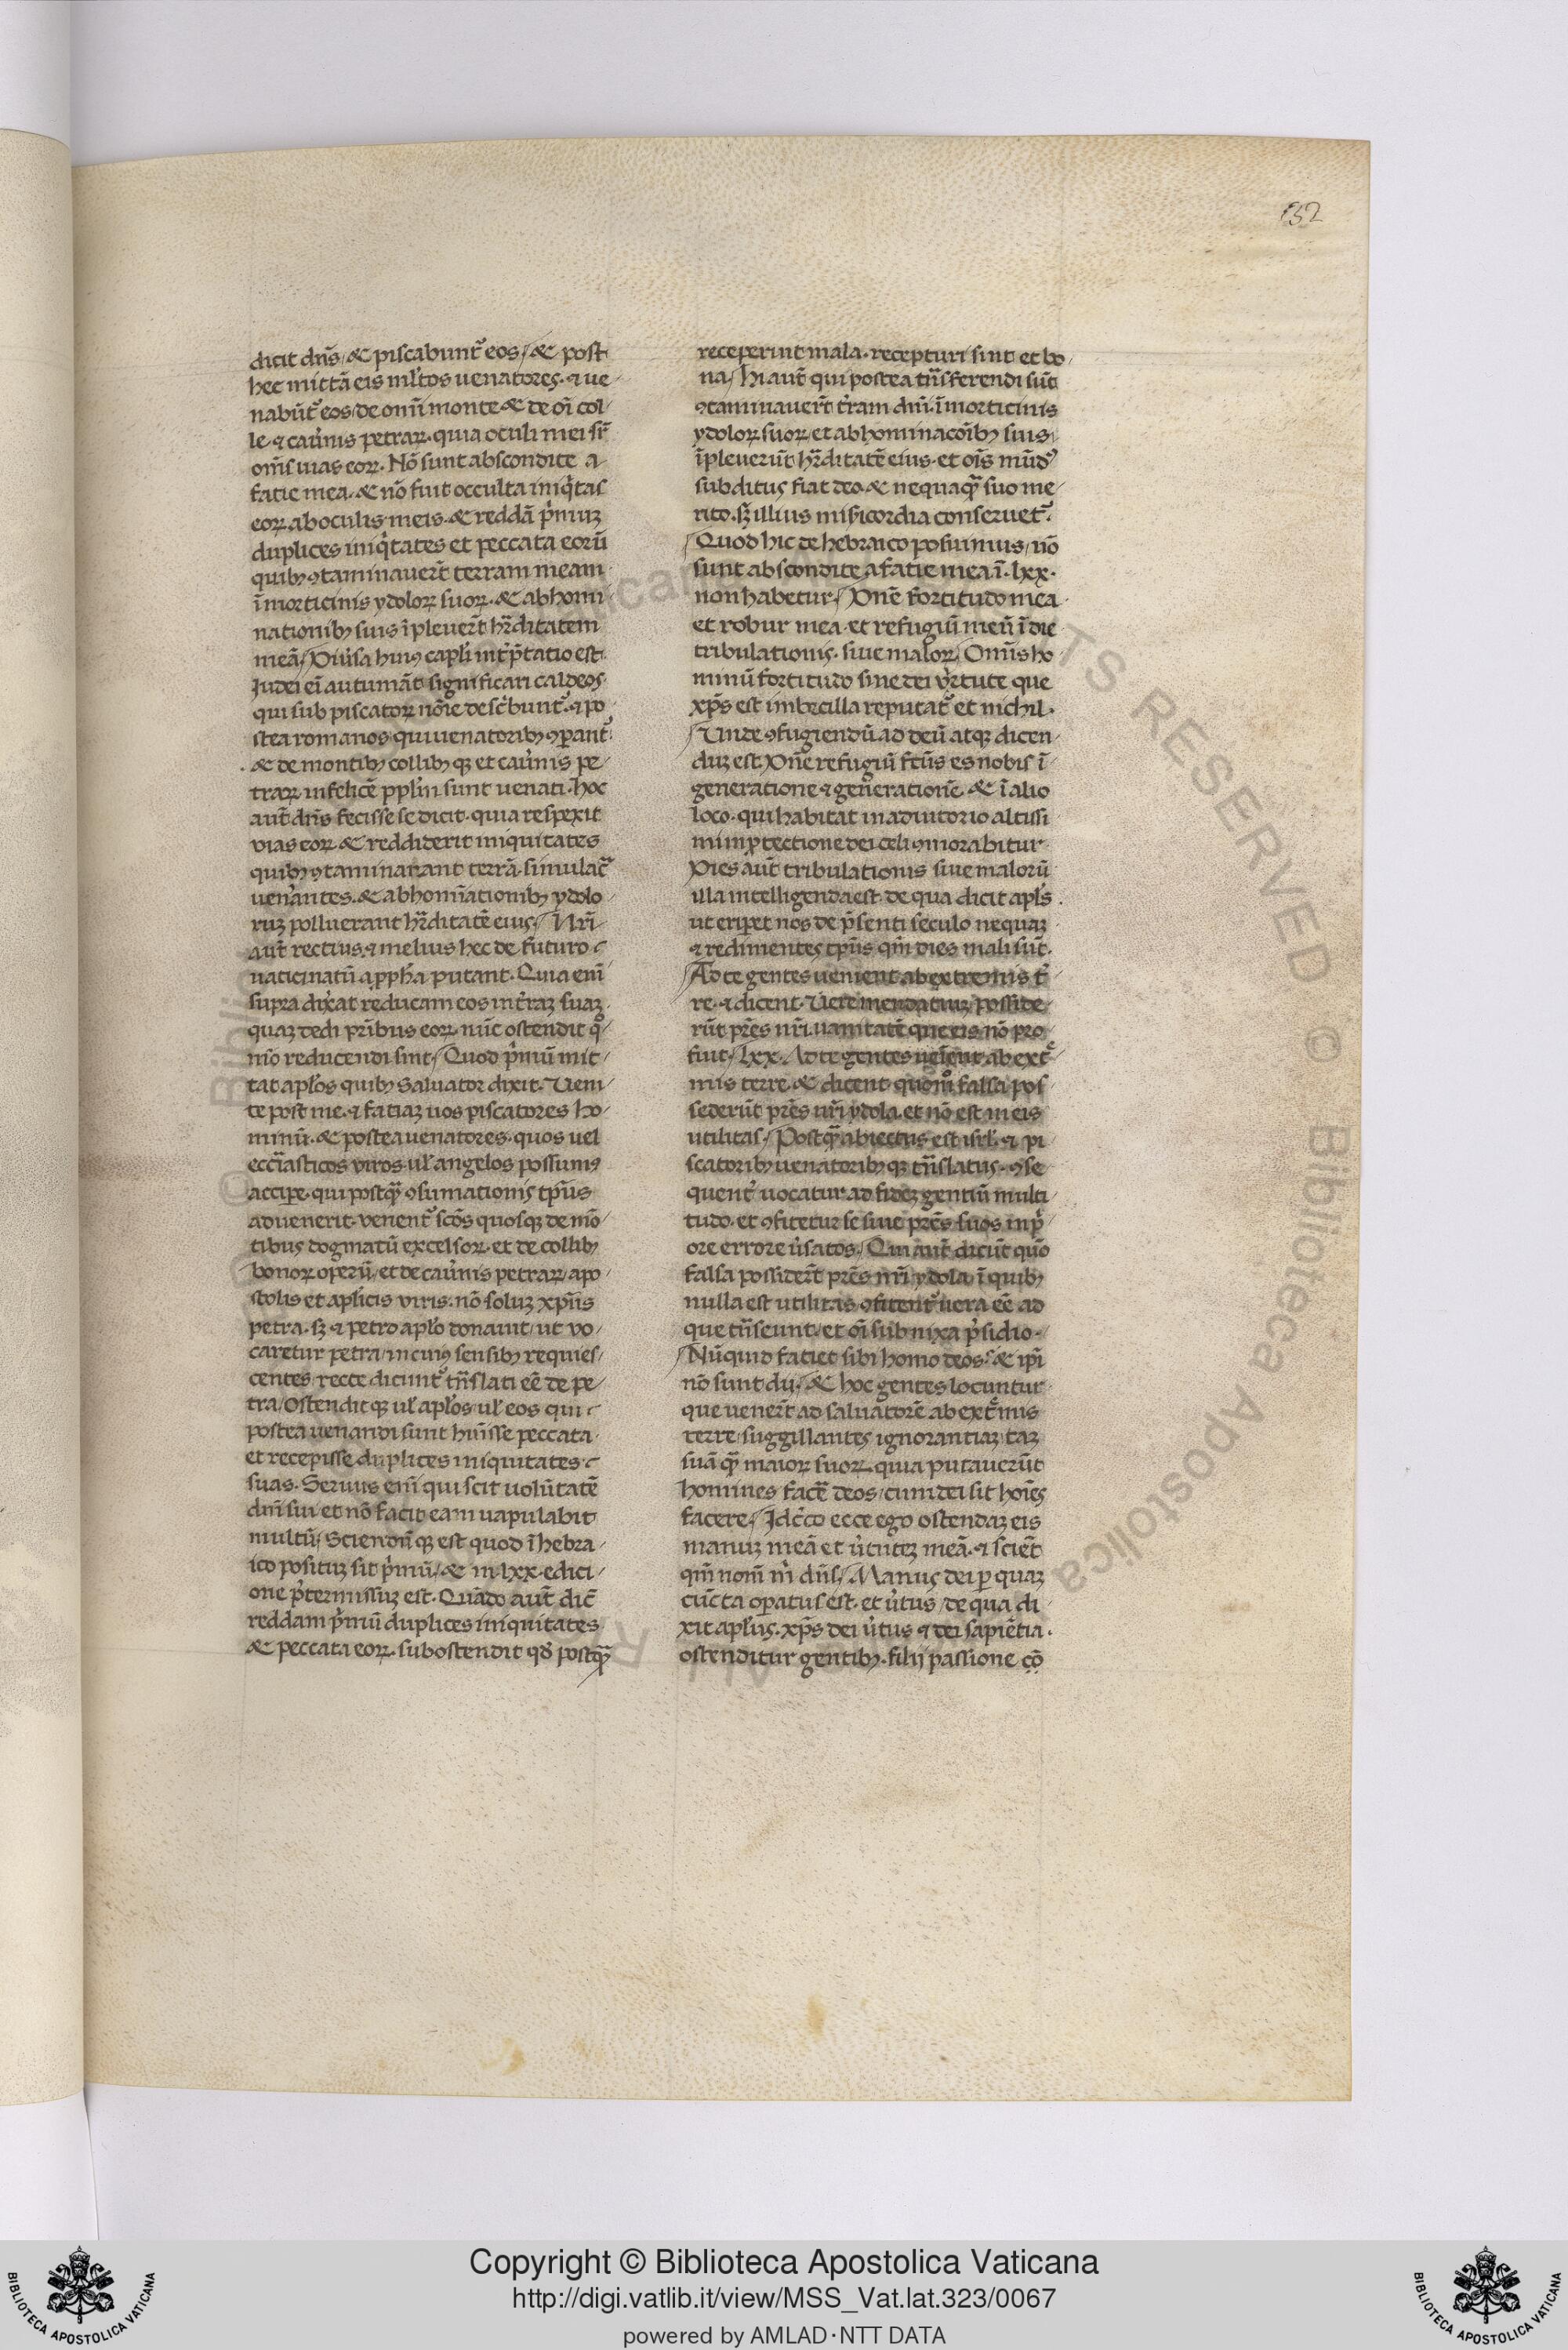 132
dicit dñs / & piscabunt᷒ eos / & post
hec mittã eis ml̃tos uenatores · ⁊ ue-
nabũt᷒ eos / de omñi monte & de oĩ col-
le · ⁊ cau̾nis petraꝝ · quia oculi mei sr̃
om̃s uias eoꝝ · Nõ sunt abscondite a
facie mea · & nõ fuit occulta iniq̾tas
eoꝝ ab oculis meis · & reddã p̾muz
duplices iniq̾tates et peccata eorũ
quibꝫ ꝯtaminauer̃t terram meam
ĩ morticinis ydoloꝝ suoꝝ · & abhomi-
nationibꝫ suis ĩpleuer̃t hr̃ditatem
meã / Diu̾sa huiꝰ capl̃i int̾p̃tatio est ·
Iudei eĩ autumãt significari caldeos ·
qui sub piscatoꝝ nõie desc̾bunt᷒ · ⁊ po-
stea romanos qui uenatoribꝫ ꝯpant᷒ ·
& de montibꝫ collibꝫ qꝫ et cau̾nis pe-
traꝝ infelicẽ ppl̃m sunt uenati · hoc
aut̃ dñs fecisse se dicit · quia respexit
vias eoꝝ & reddiderit iniquitates
quibꝫ ꝯtaminarant terrã · simulac̃
uen̾antes · & abhom̃ationibꝫ ydolo-
ruz polluerant hr̃ditatẽ eius · / Nr̃i
aut̃ rectius · ⁊ melius hec de futuro
uaticinatũ a ppħa putant · Quia enĩ
supra dix̾at reducam eos in t̾raz suaz ·
quaz dedi pr̃ibus eoꝝ · nũc ostendit qͦ
mõ reducendi sint / Quod p̾mũ mit-
tat apl̃os quibꝫ Saluator dixit · Veni-
te post me · ⁊ faciaz uos piscatores ho-
minũ · & postea uenatores · quos uel
eccl̃iasticos viros · ul̃ angelos possumꝰ
accipe · qui postq̃ ꝯsumationis tp̃us
aduenerit · venent᷒ scõs quosqꝫ de mõ-
tibus dogmatũ excelsoꝝ · et de collibꝫ
bonoꝝ operũ / et de cau̾nis petraꝝ / apo-
stolis et apl̃icis viris · nõ soluz xp̃us
petra · sꝫ ⁊ petro apl̃o donauit / ut vo-
caretur petra / in cuiꝰ sensibꝫ requies-
centes recte dicunt᷒ tñslati eẽ de pe-
tra / Ostendit qꝫ ul̃ apl̃os · ul̃ eos qui
postea uenandi sunt huĩsse peccata ·
et recepisse duplices iniquitates
suas · Seruus enĩ qui scit uolũtatẽ
dñi sui et nõ facit eam uapulabit
multũ / Sciendũ qꝫ est quod ĩ hebra-
ico positũz sit p̾mũ / & in · lxx · edici-
one p̾termissuz est · Quãdo aut̃ dic̃
reddam p̾mũ duplices iniquitates
& peccata eoꝝ · subostendit qđ postq̃
receperint mala · recepturi sint et bo-
na / Hi aut̃ qui postea tñsferendi sũt
ꝯtaminauer̃t t̾ram dñi · ĩ morticinis
ydoloꝝ suoꝝ / et abhominacõibꝫ suis
ĩpleuerũt hr̃ditatẽ eius · et oĩs mũdꝰ
subditus fiat deo · & nequaq̃ suo me-
rito · sꝫ illius mi̾sicordia conseruet᷒ ·
Quod hic de hebraico posuimus / nõ
sunt abscondite a facie mea ĩ · lxx ·
non habetur / Dñe fortitudo mea ·
et robur mea · et refugiũ meũ ĩ die
tribulationis · siue maloꝝ / Omñis ho-
minũ fortitudo sine dei v̾rtute que
xp̃s est imbecilla reputat᷒ et nichil ·
/ Unde ꝯfugiendũ ad deũ atqꝫ dicen-
duz est Dñe refugiũ fc̃us es nobis ĩ
generatione ⁊ gen̾eratione · & ĩ alio
loco · qui habitat in adiutorio altissi-
mi in ꝓtectione dei celi ꝯmorabitur ·
Dies aut̃ tribulationis siue malorũ
illa intelligenda est · de qua dicit apl̃s ·
ut eripet nos de p̃senti seculo nequaz ·
⁊ redimentes tp̃us qm̃ dies mali sũt ·
/ Ad te gentes uenient ab extremis t̾-
re · ⁊ dicent · Vere mendatiuz posside-
rũt pr̃es nr̃i uanitatẽ que eis nõ pro-
fiuit · / lxx · Ad te gentes uenient ab ext̾-
mis terre · & dicent · quom̃ falsa pos-
sederũt pr̃es nr̃i ydola · et nõ est in eis
utilitas / Postq̃ abiectus est isrl̃ · ⁊ pi-
scatoribꝫ uenatoribꝫ qꝫ tñslatus · ꝯse-
quent᷒ uocatur ad fidez gentiũ multi-
tudo · et ꝯfitetur se siue pr̃es suos in p̾-
ore errore u̾satos / Qui aut̃ dicũt quõ
falsa possider̃t pr̃es nr̃i ydola ĩ quibꝫ
nulla est utilitas ꝯfitent᷒ uera eẽ ad
que tñseunt / et oĩ subnixa p̾sidio ·
/ Nũquid faciet sibi homo deos · & ip̃i
nõ sunt dii / & hoc gentes locuntur
que uener̃t ad saluatorẽ ab ext̾mis
terre / suggillantes ignorantiaz / taz
suã q̃ maioꝝ suoꝝ · quia putauerũt
homines facẽ deos / cum dei sit hoĩes
facere / Idc̾co ecce ego ostendaz eis
manuz meã et u̾tutez meã · ⁊ sciẽt
qm̃ nom̃ m̾ dñs / Manus dei ꝑ quaz
cũcta opatus est · et u̾tus / de qua di-
xit apl̃us · xp̃s dei u̾tus ⁊ dei sapiẽtia ·
ostenditur gentibꝫ · filij passione cõ
Copyright © Biblioteca Apostolica Vaticana
http://digi.vatlib.it/view/MSS_Vat.lat.323/0067
powered by AMLAD·NTT DATA